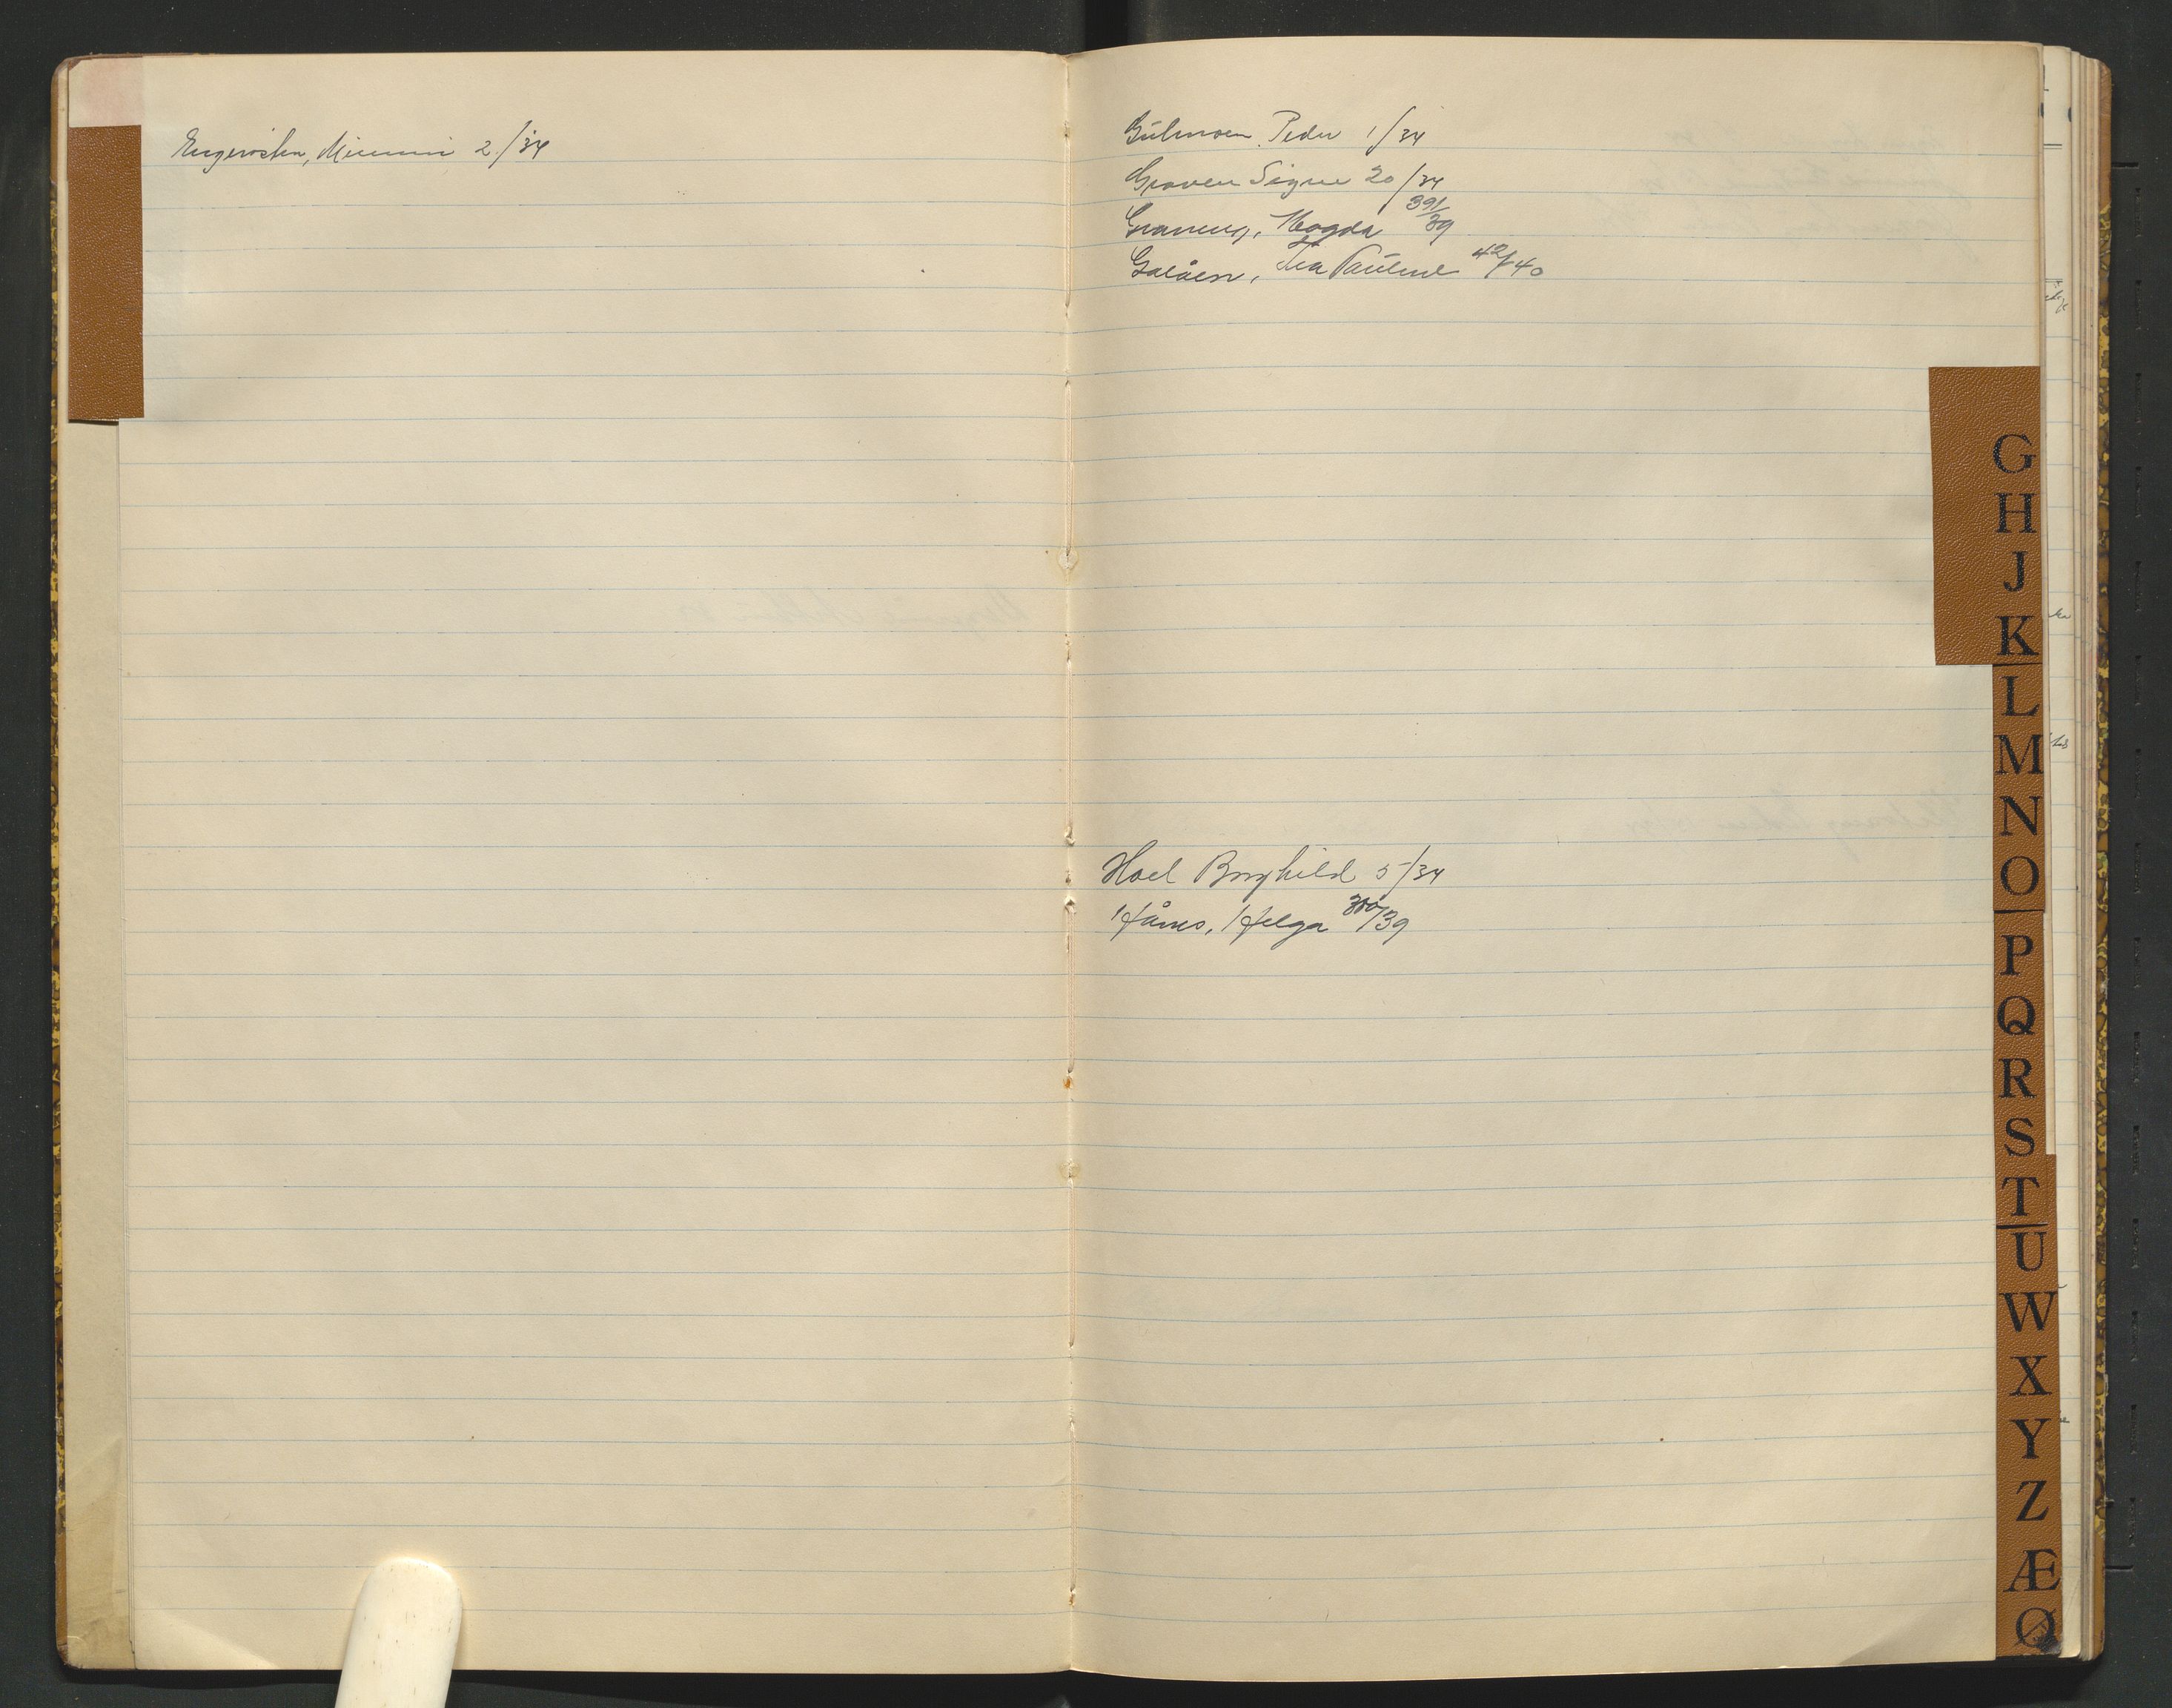 Engerösten, Mimmi 2/34
Gulmoen, Peder 1/34
Graven Signe 20/34
Magda 391/39
Galåen, Tea Pauline 42/40
Hoel Borghild 5/34
Håms, Helga 380/39
G
H
J
K
L
M
N
O
P
Q
R
S
T
U
W
X
Y
Z
Æ
Ø